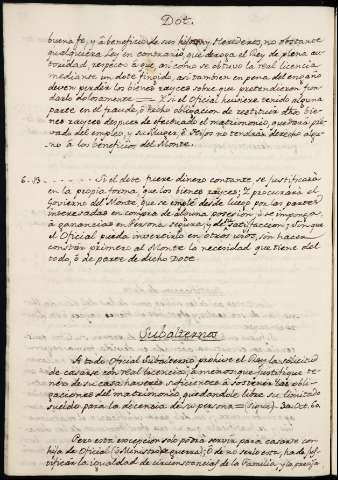 Dot.
buena fé, y á beneficio de sus hijos, y Herederos, no obstante
qualquiera Ley en contrario, que deroga el Rey de plena au-
toridad, respecto á que asi como se obtuvo la real licencia
mediante un dote fingido, asi tambien en pena del engaño
deven perder los bienes rayces sobre que pretendieron fun-
darlo dolosamente = Y si el Oficial huviere tenido alguna
parte en el fraude, ó hecho obligacion de restituir dhos bie-
nes rayces despues de efectuado el matrimonio, quedará pri-
vado del empleo, y su Muger, é Hijos no tendrán derecho algu-
no á los beneficios del Monte.
6. 13. Si el dote fuere dinero contante se justificará
en la propia forma que los bienes rayces; Y procurará el
Govierno del Monte, que se emplé desde luego por las partes
interesadas en compra de alguna posesion, ó se imponga
á ganancias en Persona segura, y de satisfaccion; sin que
el Oficial pueda invertirlo en otros usos, sin hacer
constar primero al Monte la necesidad que tiene del
todo, ó de parte de dicho Dote.
Subalternos
A todo Oficial Subalterno prohive el Rey la solicitud
de casarse con real licencia, á menos que justifique te-
ner de su casa haveres suficientes á sostener las obli-
gaciones del matrimonio, quedandole libre su limitado
sueldo para la decencia de su persona =
Pero esta excepcion solo podrá servir para casarse con
hija de Oficial (ó Ministro de guerra;) ó de no serlo esta, ha de jus-
tificar la igualdad de circunstancias de la Familia, y la precisa